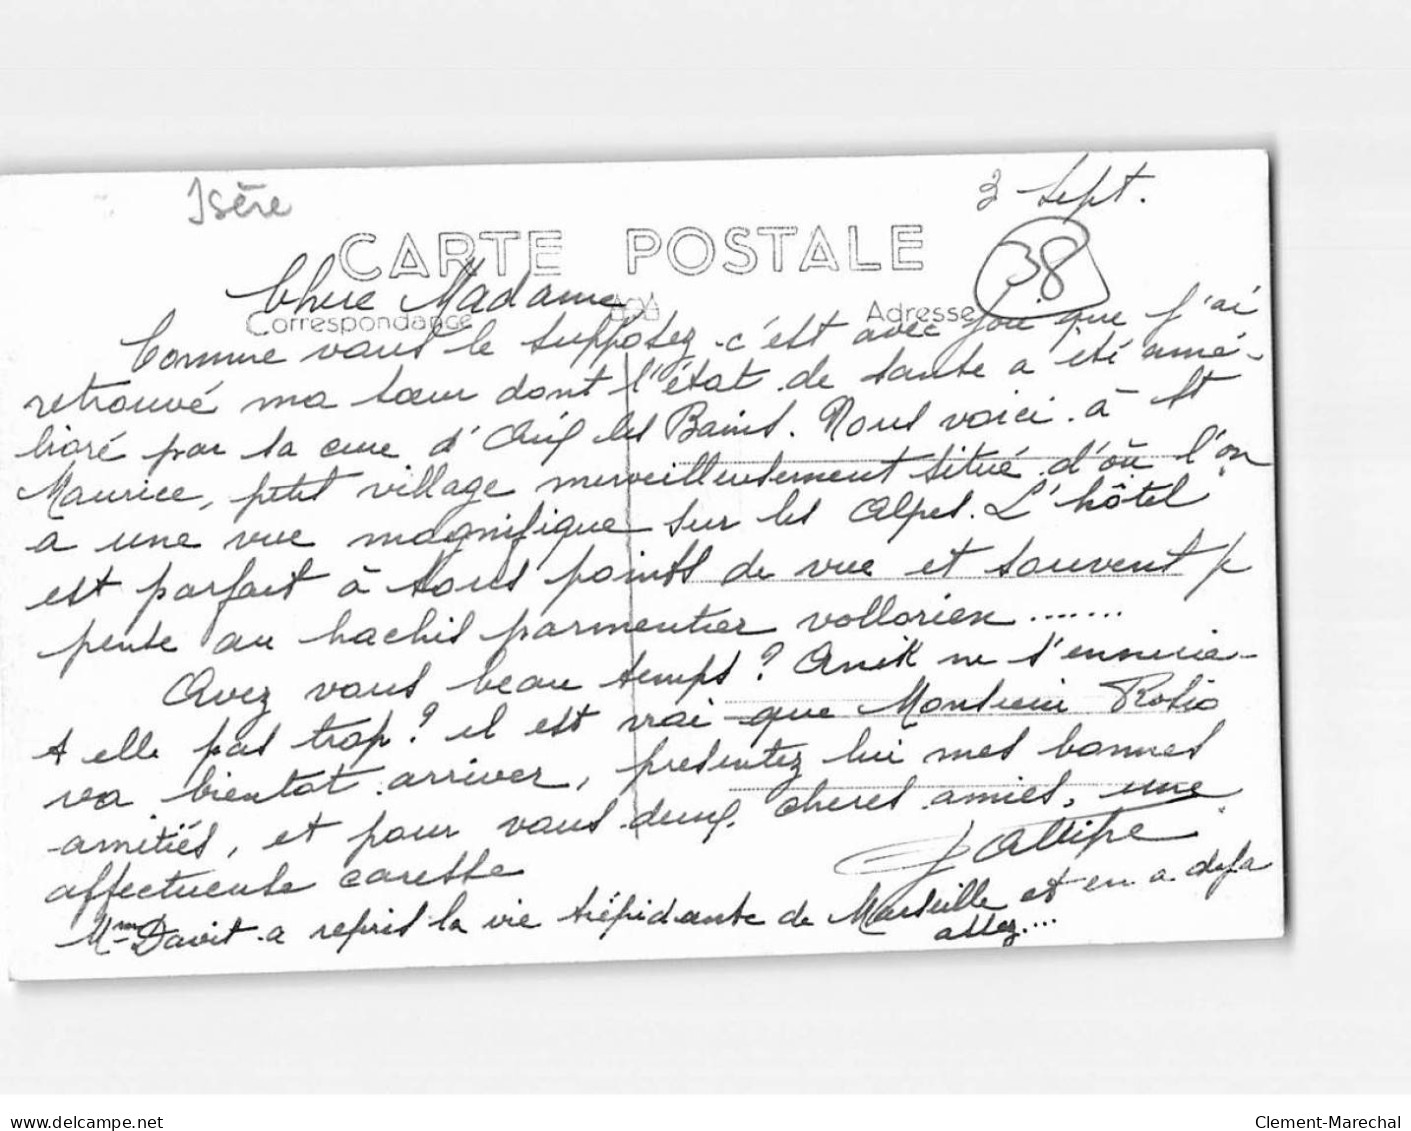 Isère
3 Sept.
CARTE POSTALE
38
Chere Madame
Correspondance
Adresse
Comme vous le supposez c'est avec joie que j'ai
retrouvé ma sœur dont l'état de sante a été amé-
lioré par sa cure d'Aix les Bains. Nous voici à St
Maurice, petit village merveilleusement situé d'où l'on
a une vue magnifique sur les Alpes. L'hôtel
est parfait à tous points de vue et souvent je
pense au hachis parmentier vollorien .......
Avez vous beau temps ? Anik ne s'ennuie-
t elle pas trop ? il est vrai que Monsieur
va bientot arriver, presentez lui mes bonnes
amitiés, et pour vous deux, cheres amies, une
affectueuse caresse
Mme Davit a repris la vie trépidante de Marseille et en a deja
assez....
Clement-Marechal
www.delcampe.net